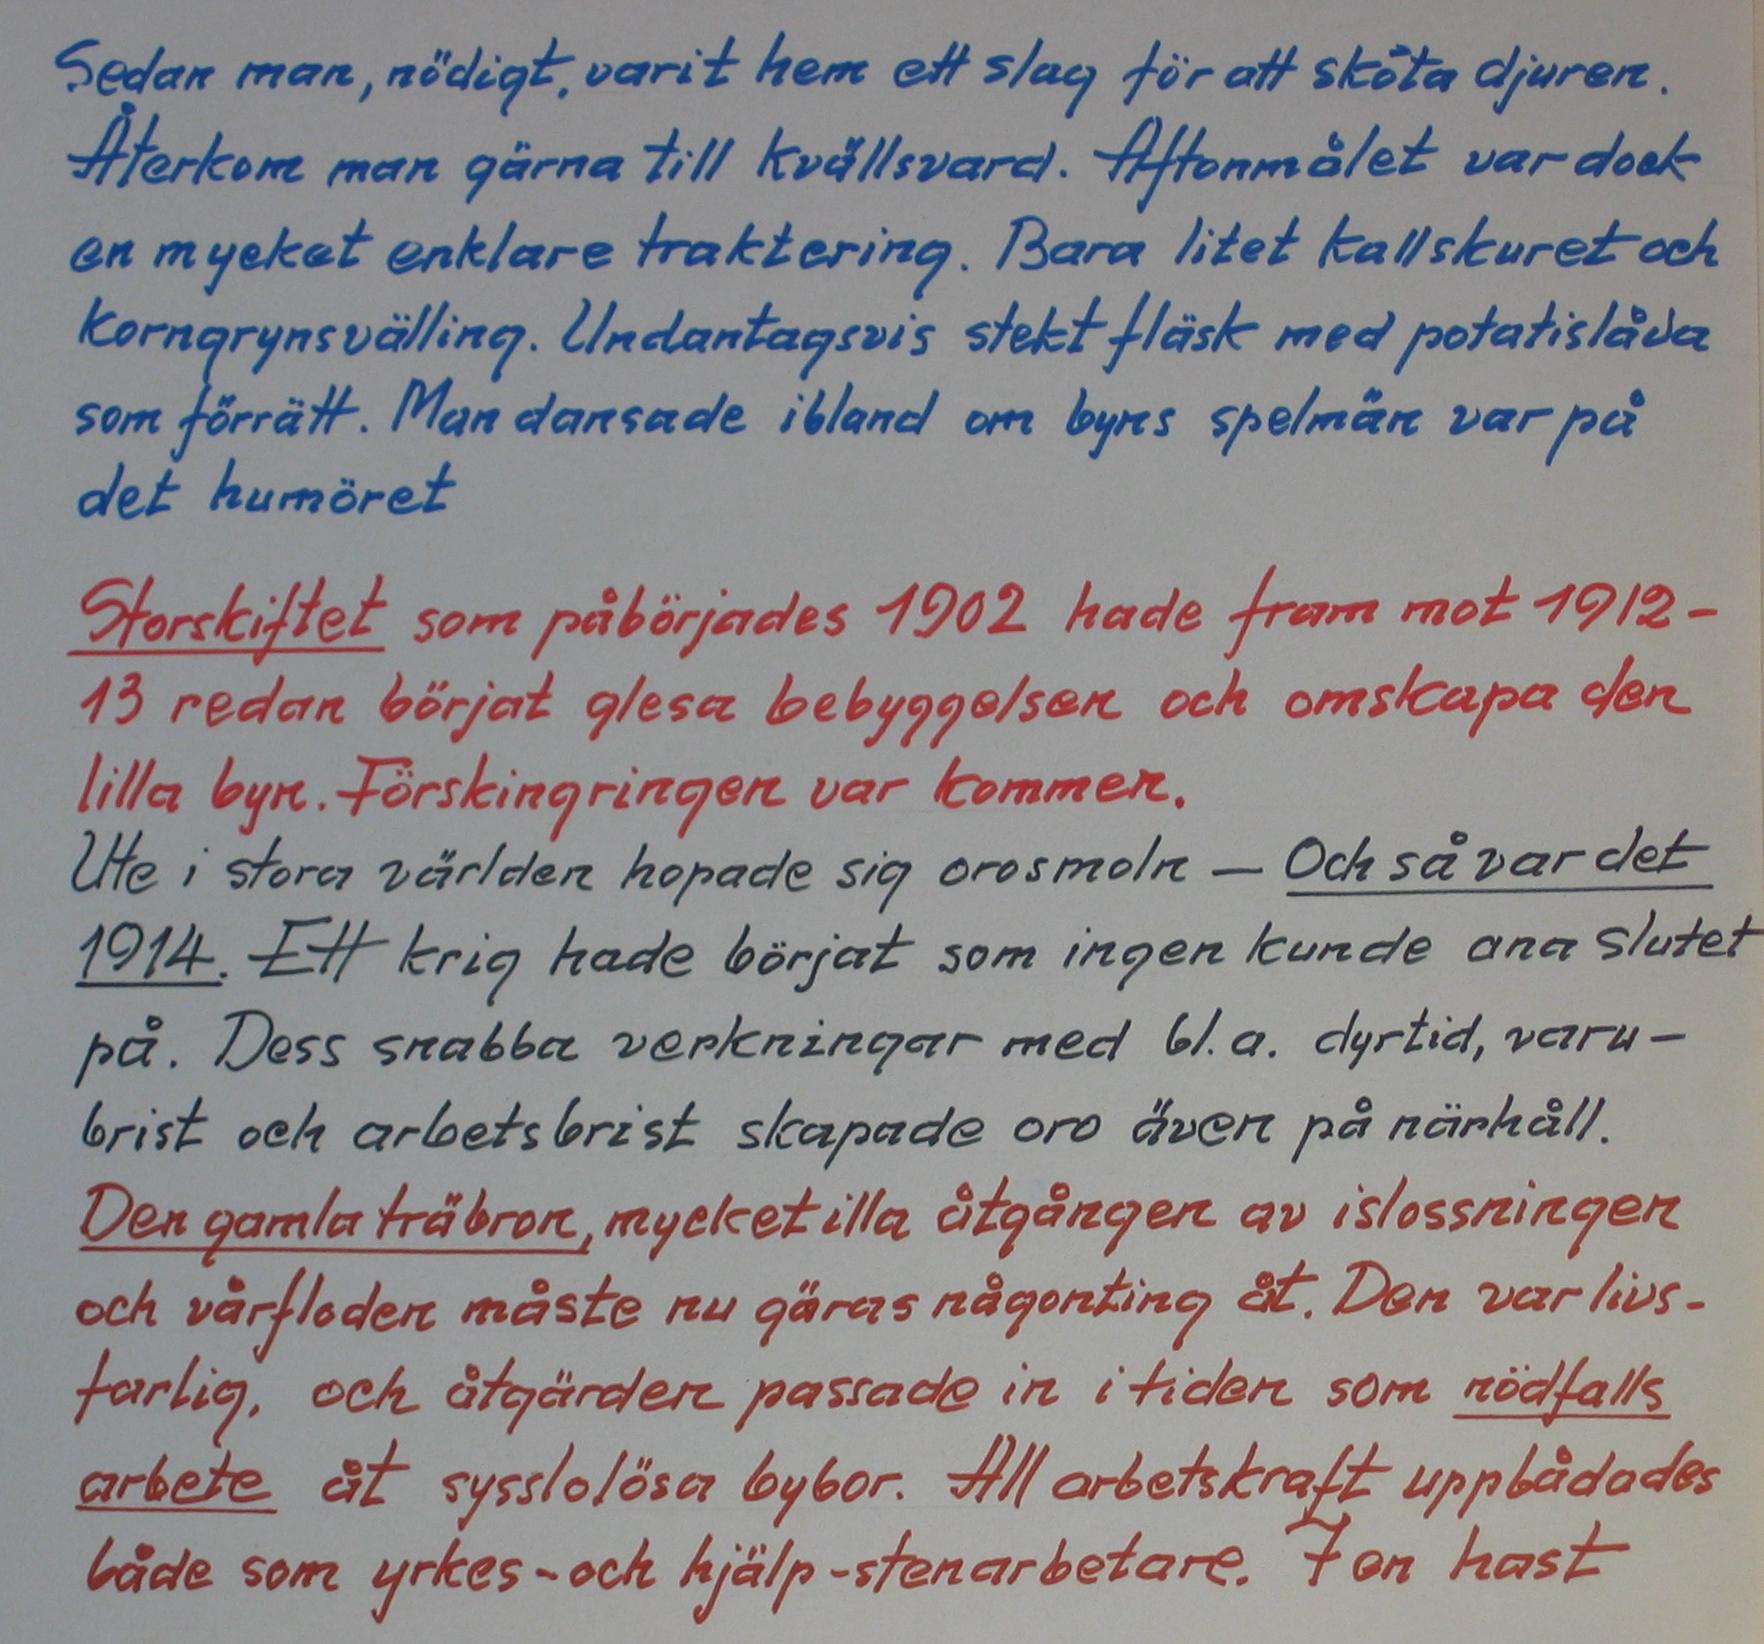 Sedan man, nödigt, varit hem ett slag för att sköta djuren.
Återkom man gärna till kvällsvard. Aftonmålet var dock
en mycket enklare traktering. Bara litet kallskuret och
korngrynsvälling. Undantagsvis stekt fläsk med potatislåda
som förrätt. Man dansade ibland om byns spelmän var på
det humöret
Storskiftet som påbörjades 1902 hade fram mot 1912-
13 redan börjat glesa bebyggelsen och omskapa den
lilla byn. Förskingringen var kommen.
Ute i stora världen hopade sig orosmoln – Och så var det
1914. Ett krig hade börjat som ingen kunde ana slutet
på. Dess snabba verkningar med bl.a. dyrtid, varu-
brist och arbetsbrist skapade oro även på närhåll.
Den gamla träbron, mycket illa åtgången av islossningen
och vårfloden måste nu göras någonting åt. Den var livs-
farlig, och åtgärden passade in i tiden som nödfalls
arbete åt sysslolösa bybor. All arbetskraft uppbådades
både som yrkes- och hjälp-stenarbetare. I en hast